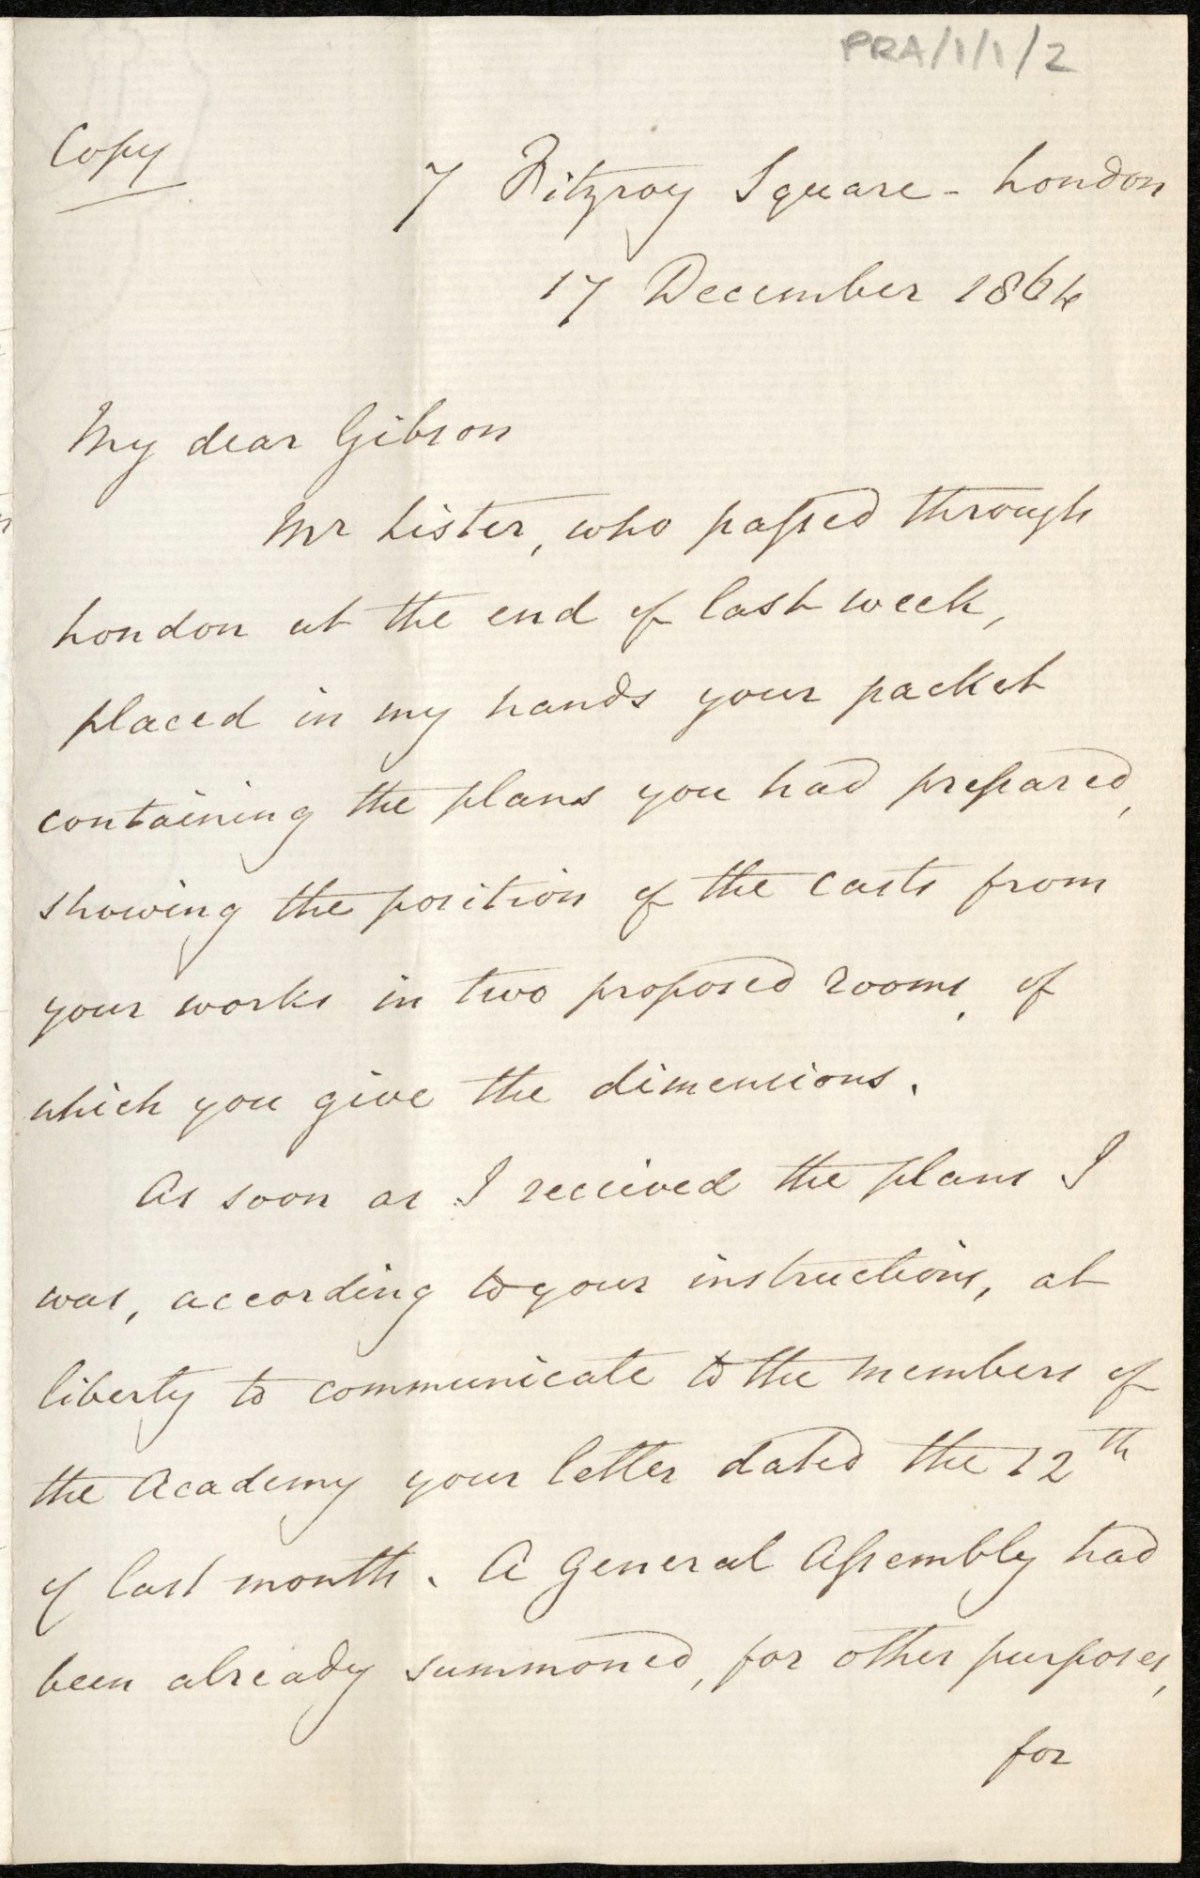 PRA/1/1/2
Copy
7 Fitzroy Square - London
17 December 1864
My dear Gibson
Mr Lister, who passed through
London at the end of last week,
placed in my hands your packet
containing the plans you had prepared,
showing the position of the casts from
your works in two proposed rooms, of
which you give the dimensions.
As soon as I received the plans I
was, according to your instructions, at
liberty to communicate to the members of
the Academy your letter dated the 12th
of last month. A General Assembly had
been already summoned, for other purposes,
for